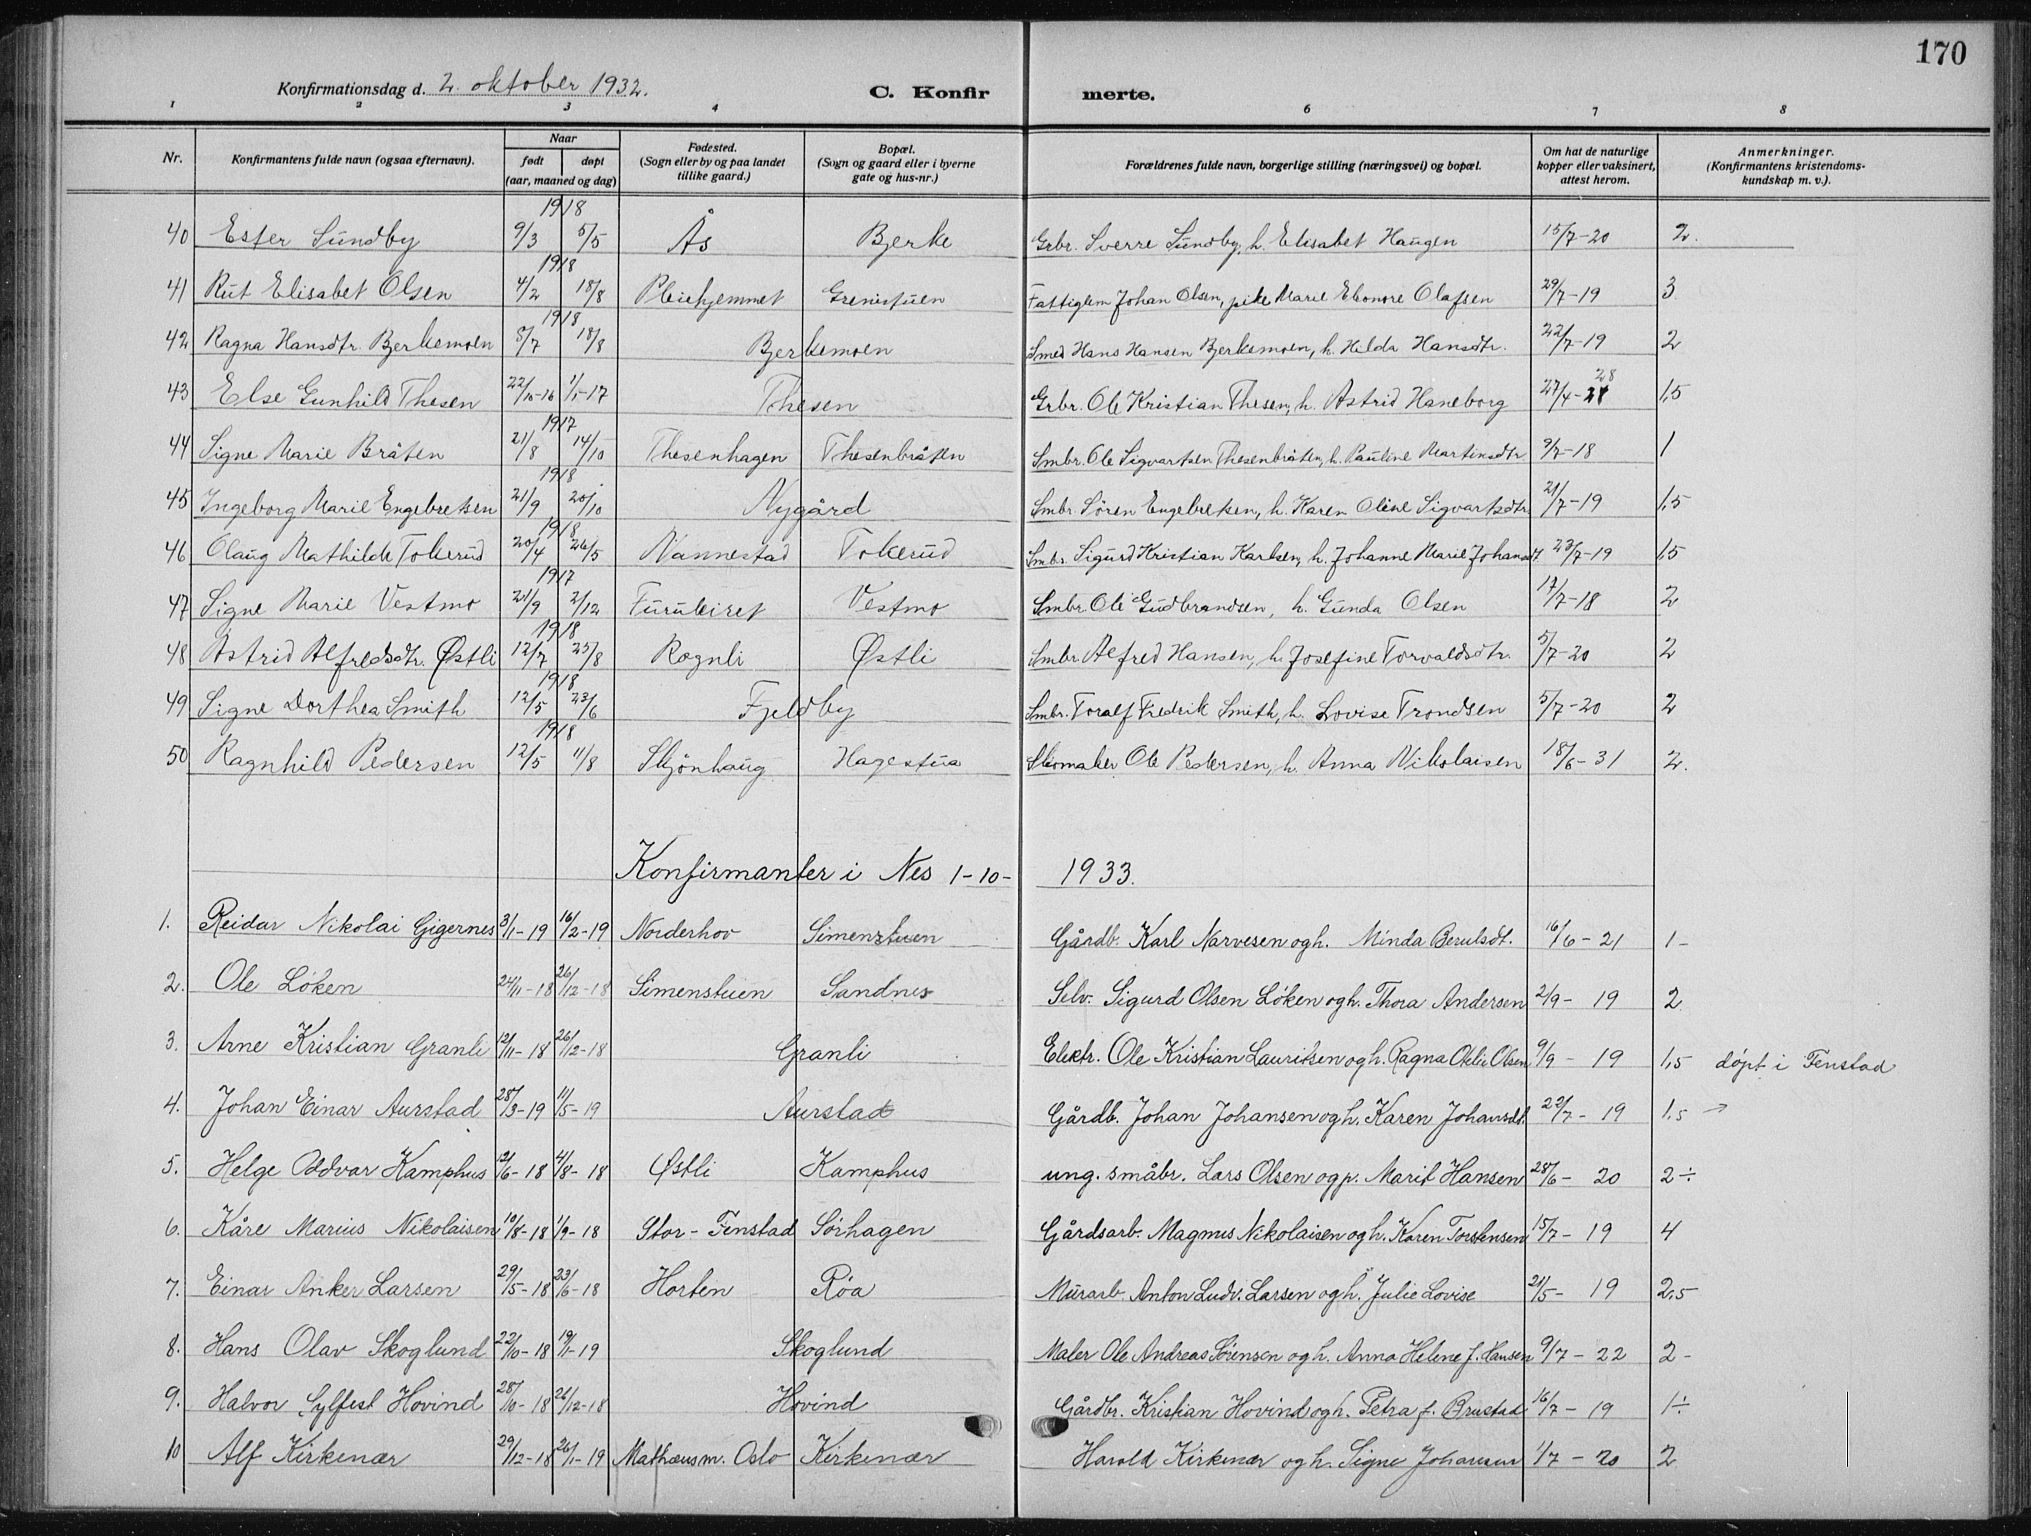 170
Konfirmationsdag d. 2. oktober 1932.
C. Konfirmerte.
1 2 3 4 6 7 8
Nr. | Konfirmantens fulde navn (ogsaa efternavn). | Naar født døpt (aar, maaned og dag) | Fødested. (Sogn eller by og paa landet tillike gaard.) | Bopæl. (Sogn og gaard eller i byerne gate og hus-nr.) | Forældrenes fulde navn, borgerlige stilling (næringsvei) og bopæl. | Om hat de naturlige kopper eller vaksinert, attest herom. | Anmerkninger. (Konfirmantens kristendomskundskap m. v.).
40 Ester Sundby 1918 9/3 5/5 Ås Bjerke Grbr. Sverre Sundby, h. Elisabet Haugen 15/7-20 2.
41 Rut Elisabet Olsen 1918 4/2 18/8 Pleiehjemmet Grenistuen Fattiglem Johan Olsen, pike Marie Eleonore Olafsen 29/7-19 3
42 Ragna Hansdtr. Bjerkemoen 1918 8/7 18/8 Bjerkemoen Smed Hans Hansen Bjerkemoen, h. Hilda Hansdtr. 22/7-19 2
43 Else Gunhild Thesen 22/10-16 1/1-17 Thesen Grbr. Ole Kristian Thesen, h. Astrid Haneborg 27/4-28 1,5
44 Signe Marie Bråten 1917 21/8 14/10 Thesenhagen Thesenbråten Smbr. Ole Sigvartsen Thesenbråten, h. Pauline Martinsdtr 9/7-18 1
45 Ingeborg Marie Engebretsen 1918 21/9 20/10 Nygård Smbr. Søren Engebretsen, h. Karen Oline Sigvartsdtr 21/7-19 1,5
46 Olaug Mathilde Tokerud 1918 20/4 26/5 Nannestad Tokerud Smbr. Sigurd Kristian Karlsen, h. Johanne Marie Johansdt. 23/7-19 1,5
47 Signe Marie Vestmo 1917 21/9 2/12 Furuleiret Vestmo Smbr. Ole Gudbrandsen, h. Gunda Olsen 17/7-18 2
48 Astrid Alfredsdtr. Østli 1918 12/7 25/8 Rognli Østli Smbr. Alfred Hansen, h. Josefine Torvaldsdtr. 5/7-20 2
49 Signe Dorthea Smith 1918 12/5 23/6 Fjeldby Smbr. Toralf Fredrik Smith, h. Lovise Trondsen 5/7-20 2
50 Ragnhild Pedersen 1918 12/5 11/8 Skjönhaug Hagestua Skomaker Ole Pedersen, h. Anna Nikolaisen 18/6-31 2.
Konfirmanter i Nes 1-10- 1933.
1. Reidar Nikolai Gigernes 3/1-19 16/2-19 Norderhov Simenstuen Gårdb. Karl Narvesen og h. Minda Berulsdt. 16/6-21 1-
2. Ole Løken 24/11-18 26/12-18 Simenstuen Sandnes Selv. Sigurd Olsen Løken og h. Thora Andersen 2/9-19 2
3. Arne Kristian Granli 12/11-18 26/12-18 Granli Elektr. Ole Kristian Lauritsen og h. Ragna Otilie Olsen 9/9-19 1,5 døpt i Fenstad
4. Johan Einar Aurstad 28/3-19 11/5-19 Aurstad Gårdb. Johan Johansen og h. Karen Johansdt. 22/7-19 1,5 →
5. Helge Oddvar Kamphus 12/6-18 4/8-18 Østli Kamphus ung. småbr. Lars Olsen og p. Marit Hansen 28/6-20 2÷
6. Kåre Marius Nikolaisen 10/8-18 1/9-18 Stor-Fenstad Sørhagen Gårdsarb. Magnus Nikolaisen og h. Karen Torstensen 15/7-19 4
7. Einar Anker Larsen 29/5-18 23/6-18 Horten Røa Murarb. Anton Ludv. Larsen og h. Julie Lovise 21/5-19 2,5
8. Hans Olav Skoglund 22/10-18 19/1-19 Skoglund Maler Ole Andreas Sørensen og h. Anna Helene f. Hansen 9/7-22 2-
9. Halvor Sylfest Hovind 28/10-18 26/12-18 Hovind Gårdbr. Kristian Hovind og h. Petra f. Brustad 16/7-19 1÷
10 Alf Kirkenær 29/12-18 26/1-19 Mathæus m. Oslo Kirkenær Harald Kirkenær og h. Signe Johansen 1/7-20 2